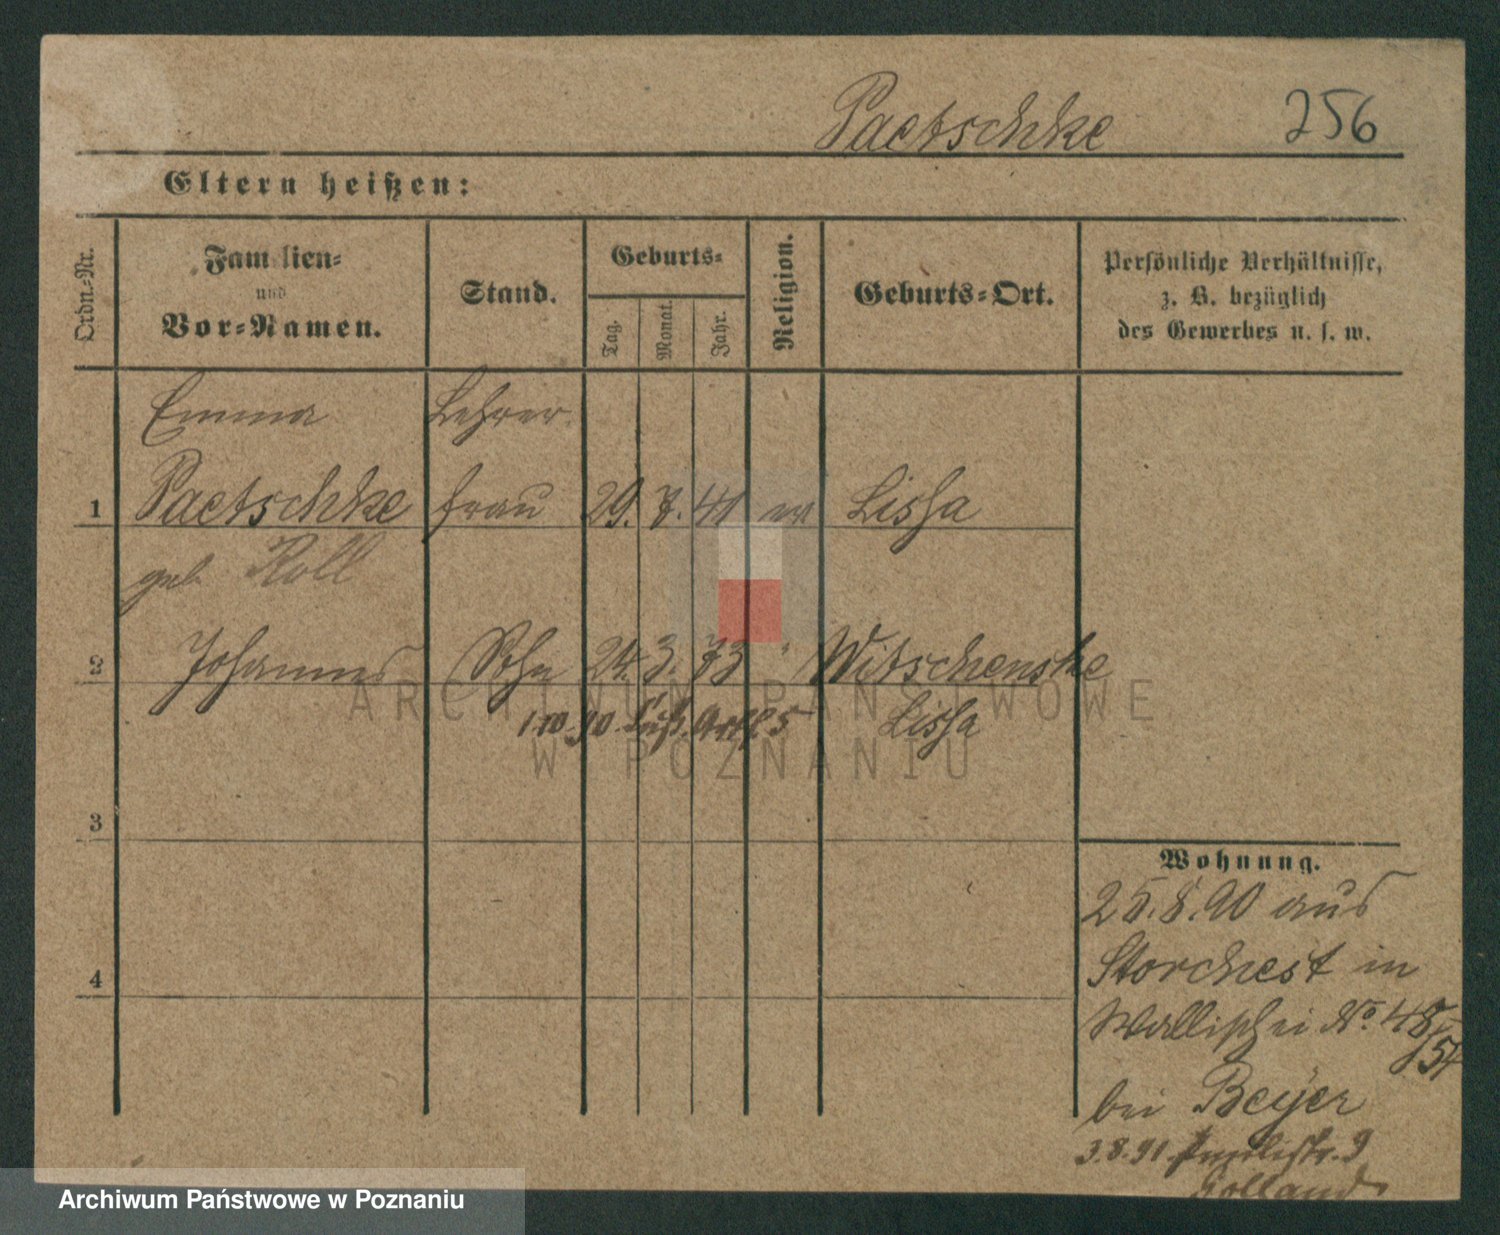 Paetschke 256
Eltern heißen:
Ordn.-Nr.
Familien-
und
Vor-Namen.
Stand.
Geburts-
Tag.
Monat.
Jahr.
Religion.
Geburts-Ort.
Persönliche Verhältnisse,
z. B. bezüglich
des Gewerbes u. s. w.
Emma Lehrer
1 Paetschke frau 29. 7. 41 ev Lissa
geb Roll
2 Johannes Sohn 24. 3. 73 " Witschenske
1.10.90. Fuß. Artl 5 Lissa
3
4
Wohnung.
25.8.90 aus
Storchnest in
Wallischei No. 48/
54
bei Beyer
3.8.91. Paulistr. 9
Golland
ARCHIWUM PAŃSTWOWE
W POZNANIU
Archiwum Państwowe w Poznaniu